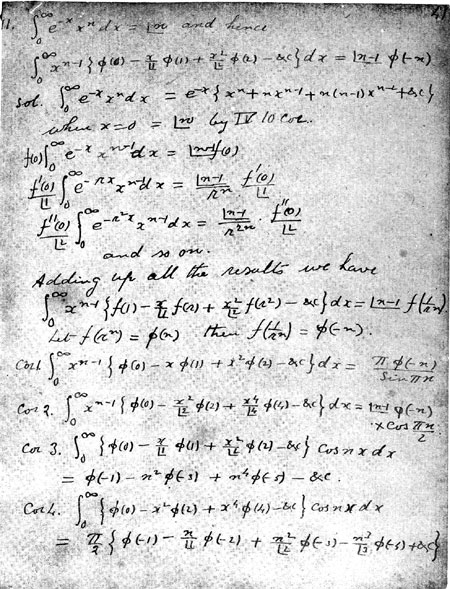 41
11. ∫₀^∞ e^{-x} x^n dx = |n and hence
∫₀^∞ x^{n-1} {φ(0) - x/|1 φ(1) + x²/|2 φ(2) - &c} dx = |n-1 φ(-n)
Sol. ∫₀^∞ e^{-x} x^n dx = e^{-x} {x^n + nx^{n-1} + n(n-1)x^{n-2} + &c}
when x=0 = |n by IV 10 Cor.
f(0) ∫₀^∞ e^{-x} x^{n-1} dx = |n-1 f(0)
f'(0)/|1 ∫₀^∞ e^{-rx} x^{n-1} dx = |n-1/r^n f'(0)/|1
f''(0)/|2 ∫₀^∞ e^{-r²x} x^{n-1} dx = |n-1/r^{2n} · f''(0)/|2
and so on.
Adding up all the results we have
∫₀^∞ x^{n-1} {f(1) - x/|1 f(r) + x²/|2 f(r²) - &c} dx = |n-1 f(1/r^n).
Let f(r^n) = φ(n) then f(1/r^n) = φ(-n).
Cor 1 ∫₀^∞ x^{n-1} {φ(0) - x φ(1) + x² φ(2) - &c} dx = π φ(-n)/Sin πn
Cor 2. ∫₀^∞ x^{n-1} {φ(0) - x²/|2 φ(2) + x⁴/|4 φ(4) - &c} dx = |n-1 φ(-n)
× cos πn/2.
Cor 3. ∫₀^∞ {φ(0) - x/|1 φ(1) + x²/|2 φ(2) - &c} cos nx dx
= φ(-1) - n² φ(-3) + n⁴ φ(-5) - &c.
Cor 4. ∫₀^∞ {φ(0) - x² φ(2) + x⁴ φ(4) - &c} cos nx dx
= π/2 {φ(-1) - n/|1 φ(-2) + n²/|2 φ(-3) - n³/|3 φ(-4) + &c}